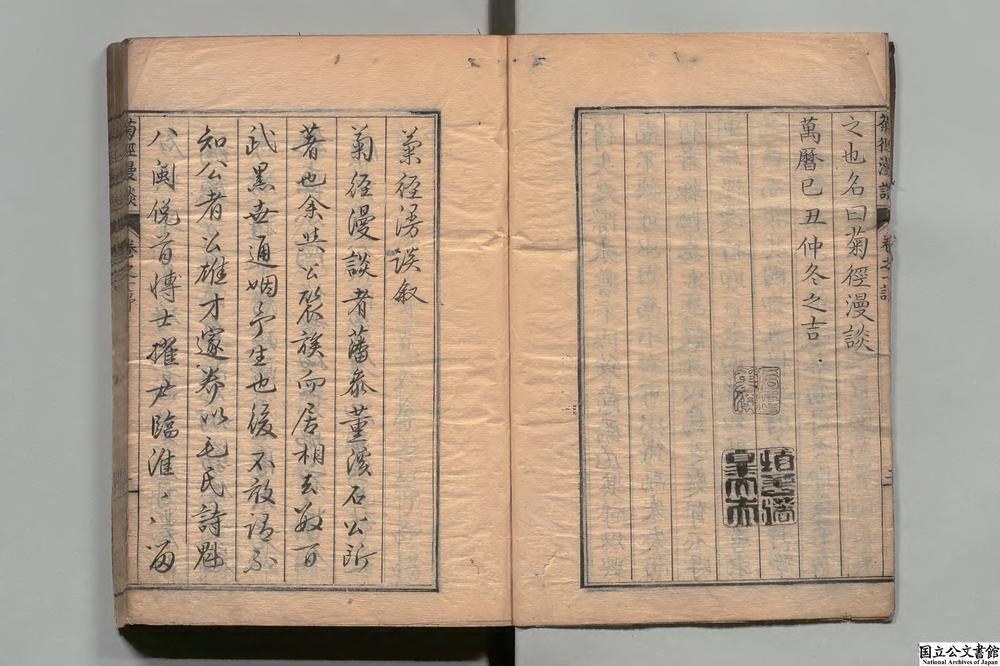 之也名曰菊徑漫談
萬曆己丑仲冬之吉
菊徑漫談
卷之一
二
菊徑漫談敘
菊徑漫談者藩參董溪石公所
著也余與公聚族而居相去數百
武累世通姻予生也後不敢謂不
知公者公雄才邃養以毛氏詩魁
八閩俛首博士擢尹臨淮
菊徑漫談
卷之一序
一
国立公文書館
National Archives of Japan